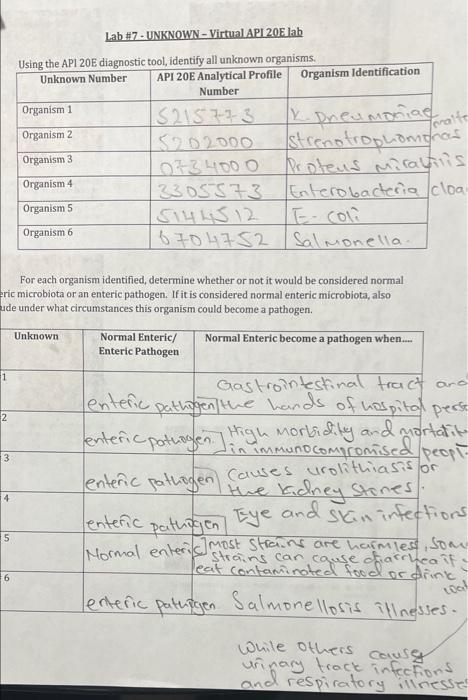 Lab #7 - UNKNOWN – Virtual API 20E lab
Using the API 20E diagnostic tool, identify all unknown organisms.
Unknown Number API 20E Analytical Profile Number Organism Identification
Organism 1 5215773 K. pneumoniae
Organism 2 5202000 Strenotrophomonas
Organism 3 0734000 Proteus mirabilis
Organism 4 3305573 Enterobacteria cloa
Organism 5 5144512 E. coli
Organism 6 6704752 Salmonella.
For each organism identified, determine whether or not it would be considered normal
eric microbiota or an enteric pathogen. If it is considered normal enteric microbiota, also
ude under what circumstances this organism could become a pathogen.
Unknown Normal Enteric/ Enteric Pathogen Normal Enteric become a pathogen when....
1 enteric pathogen Gastrointestinal tract and
the hands of hospital perso
2 enteric pathogen High morbidity and mortalit
in immunocompromised peopl
3 enteric pathogen causes urolithiasis or
the kidney stones.
4 enteric pathogen Eye and skin infections
5 Normal enteric most strains are harmless, som
strains can cause diarrhea if
eat contaminated food or drink
wat
6 enteric pathogen Salmonellosis illnesses.
while others cause
urinary tract infections
and respiratory illnesse